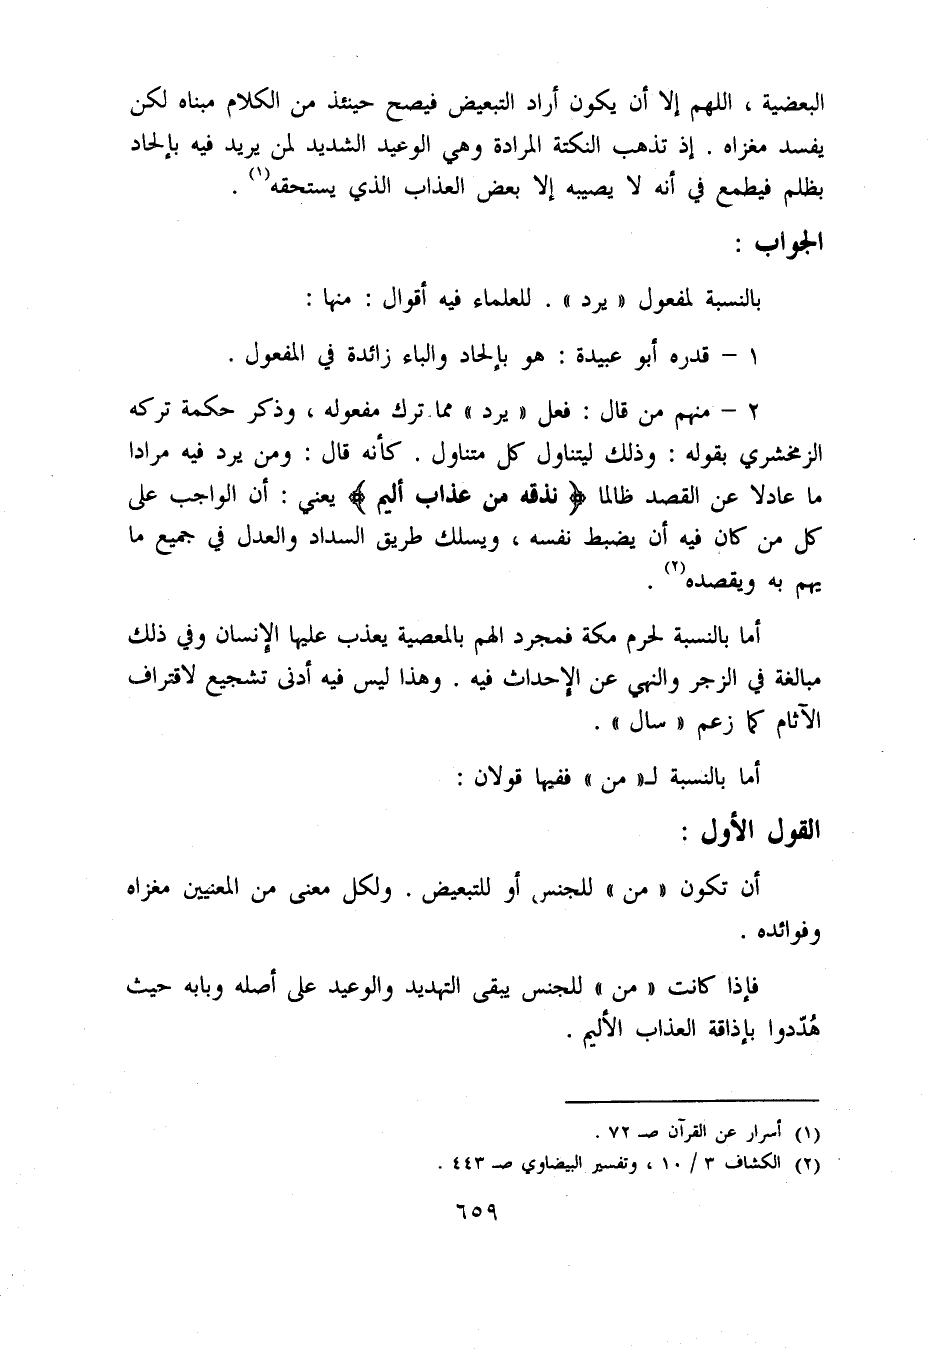 البعضية ، اللهم إلا أن يكون أراد التبعيض فيصح حينئذ من الكلام مبناه لكن
يفسد مغزاه . إذ تذهب النكتة المرادة وهي الوعيد الشديد لمن يريد فيه بإلحاد
بظلم فيطمع في أنه لا يصيبه إلا بعض العذاب الذي يستحقه(١) .
الجواب :
بالنسبة لمفعول « يرد » . للعلماء فيه أقوال : منها :
١ – قدره أبو عبيدة : هو بإلحاد والباء زائدة في المفعول .
٢ – منهم من قال : فعل « يرد » مما ترك مفعوله ، وذكر حكمة تركه
الزمخشري بقوله : وذلك ليتناول كل متناول . كأنه قال : ومن يرد فيه مرادا
ما عادلا عن القصد ظالما ﴿ نذقه من عذاب أليم ﴾ يعني : أن الواجب على
كل من كان فيه أن يضبط نفسه ، ويسلك طريق السداد والعدل في جميع ما
يهم به ويقصده(٢) .
أما بالنسبة لحرم مكة فمجرد الهم بالمعصية يعذب عليها الإنسان وفي ذلك
مبالغة في الزجر والنهي عن الإحداث فيه . وهذا ليس فيه أدنى تشجيع لاقتراف
الآثام كما زعم « سال » .
أما بالنسبة لـ« من » ففيها قولان :
القول الأول :
أن تكون « من » للجنس أو للتبعيض . ولكل معنى من المعنيين مغزاه
وفوائده .
فإذا كانت « من » للجنس يبقى التهديد والوعيد على أصله وبابه حيث
هُدّدوا بإذاقة العذاب الأليم .
(١) أسرار عن القرآن صـ ٧٢ .
(٢) الكشاف ٣ / ١٠ ، وتفسير البيضاوي صـ ٤٤٣ .
٦٥٩